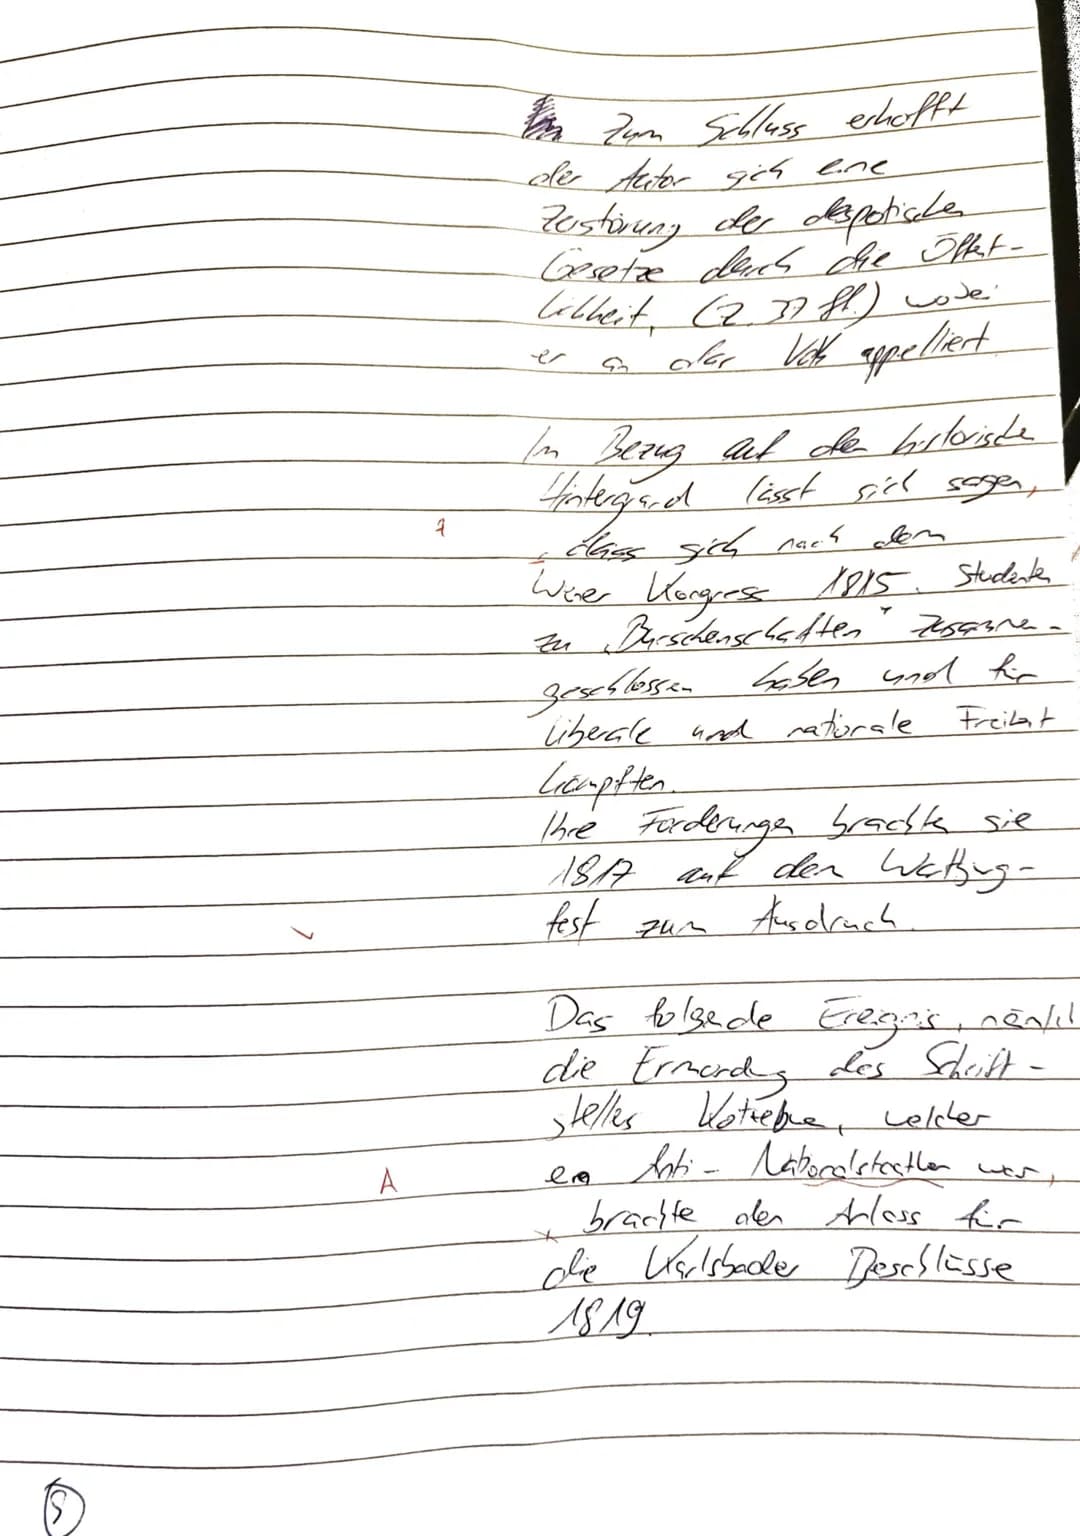 Zum Schluss erhofft
der Autor sich eine
Zerstörung der despotischen
Gesetze durch die Öffent-
lichkeit, (Z. 37 ff.) wobei
er an das Volk appelliert.
In Bezug auf den historischen
Hintergrund lässt sich sagen,
dass sich nach dem
Wiener Kongress 1815 Studenten
zu "Burschenschaften" zusammen-
geschlossen haben und für
liberale und nationale Freiheit
kämpften.
Ihre Forderungen brachten sie
1817 auf dem Wartburg-
fest zum Ausdruck.
Das folgende Ereignis, nämlich
die Ermordung des Schrift-
stellers Kotzebue, welcher
ein Anti-Nationalstaatler war,
A
brachte den Anlass für
die Karlsbader Beschlüsse
1819.
5